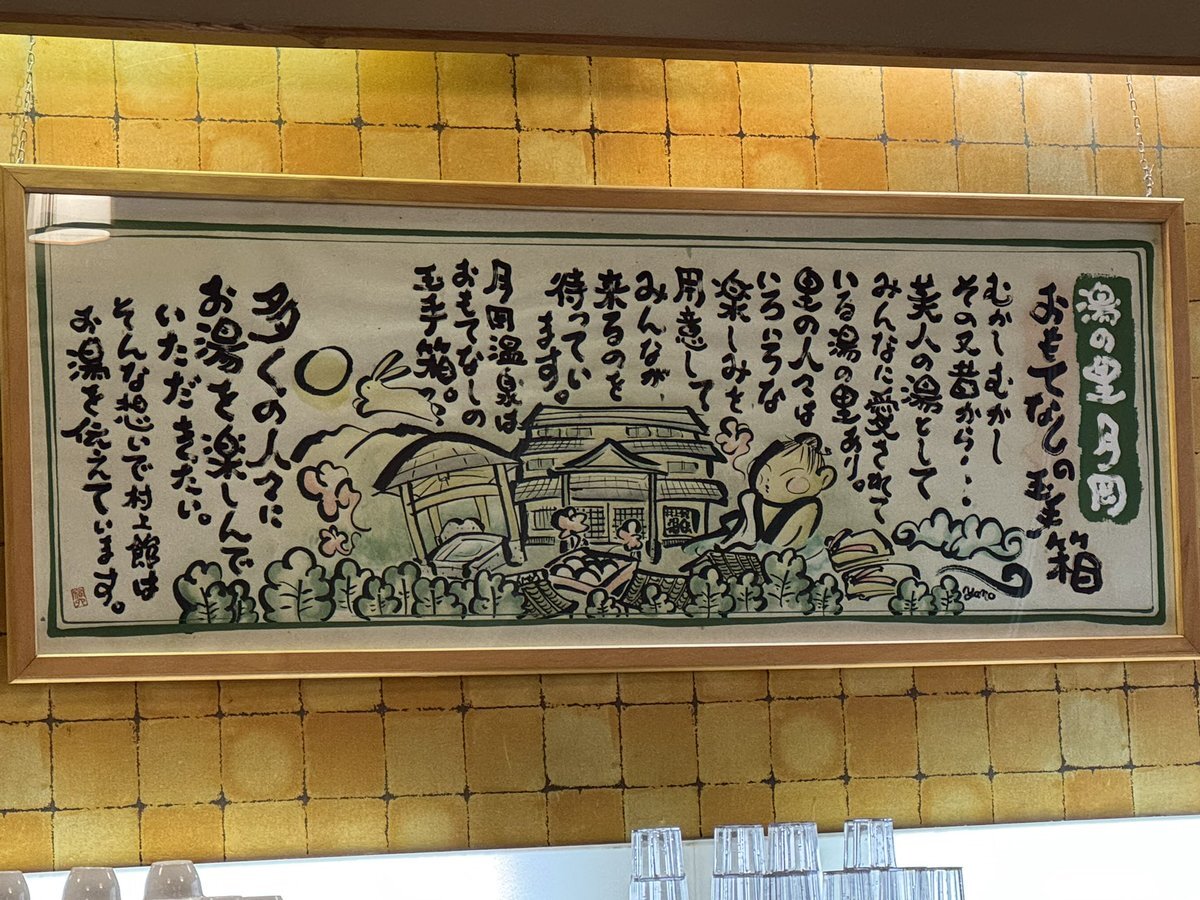 湯の里月岡
おもてなしの玉手箱
むかしむかし
その又昔から・・・
美人の湯として
みんなに愛されて
いる湯の里あり。
里の人々は
いろいろな
楽しみを
用意して
みんなが
来るのを
待ってい
ます。
月岡温泉は
おもてなしの
玉手箱。
多くの人々に
お湯を楽しんで
いただきたい。
そんな想いで村上館は
お湯を伝えています。